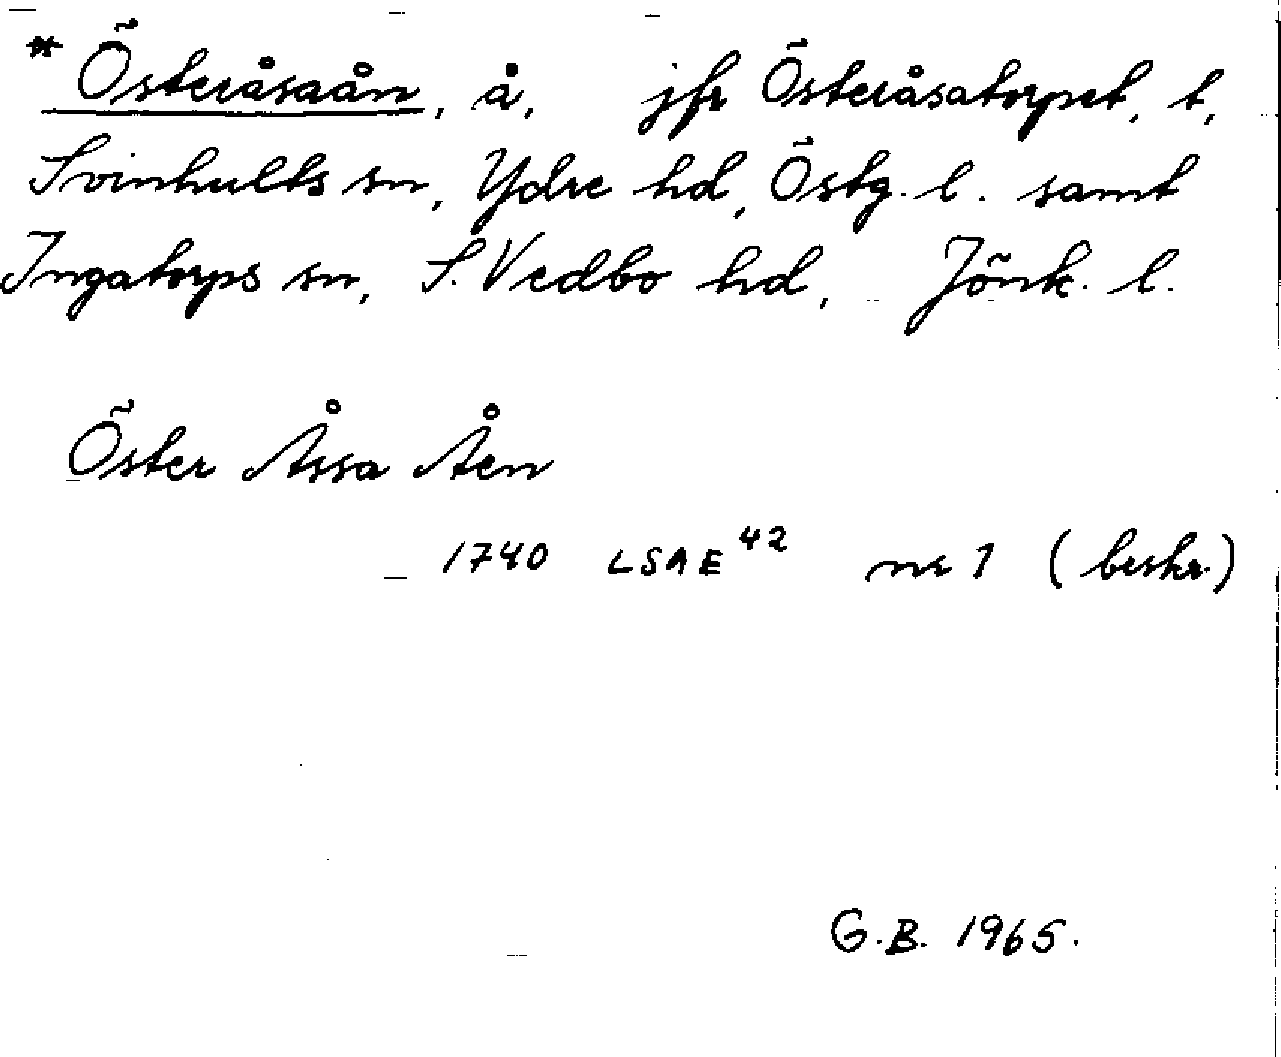 * Österåsaån, å, jfr Österåsatorpet, t,
Svinhults sn, Ydre hd, Östg. l. samt
Ingatorps sn, S. Vedbo hd, Jönk. l.
Öster Åssa Åen
1740 LSA E 42 nr 1 (beskr.)
G.B. 1965.